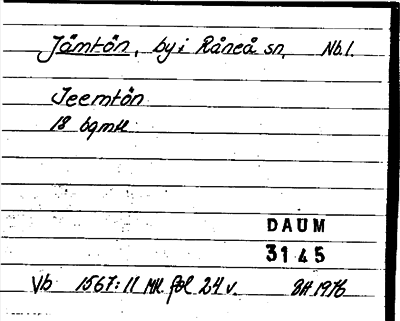 Jämtön, by i Råneå sn, Nb.l.
Jeemtön
18 bqmH
DAUM
3145
Vb 1567:11 MH. fol 24 v. BH 1976